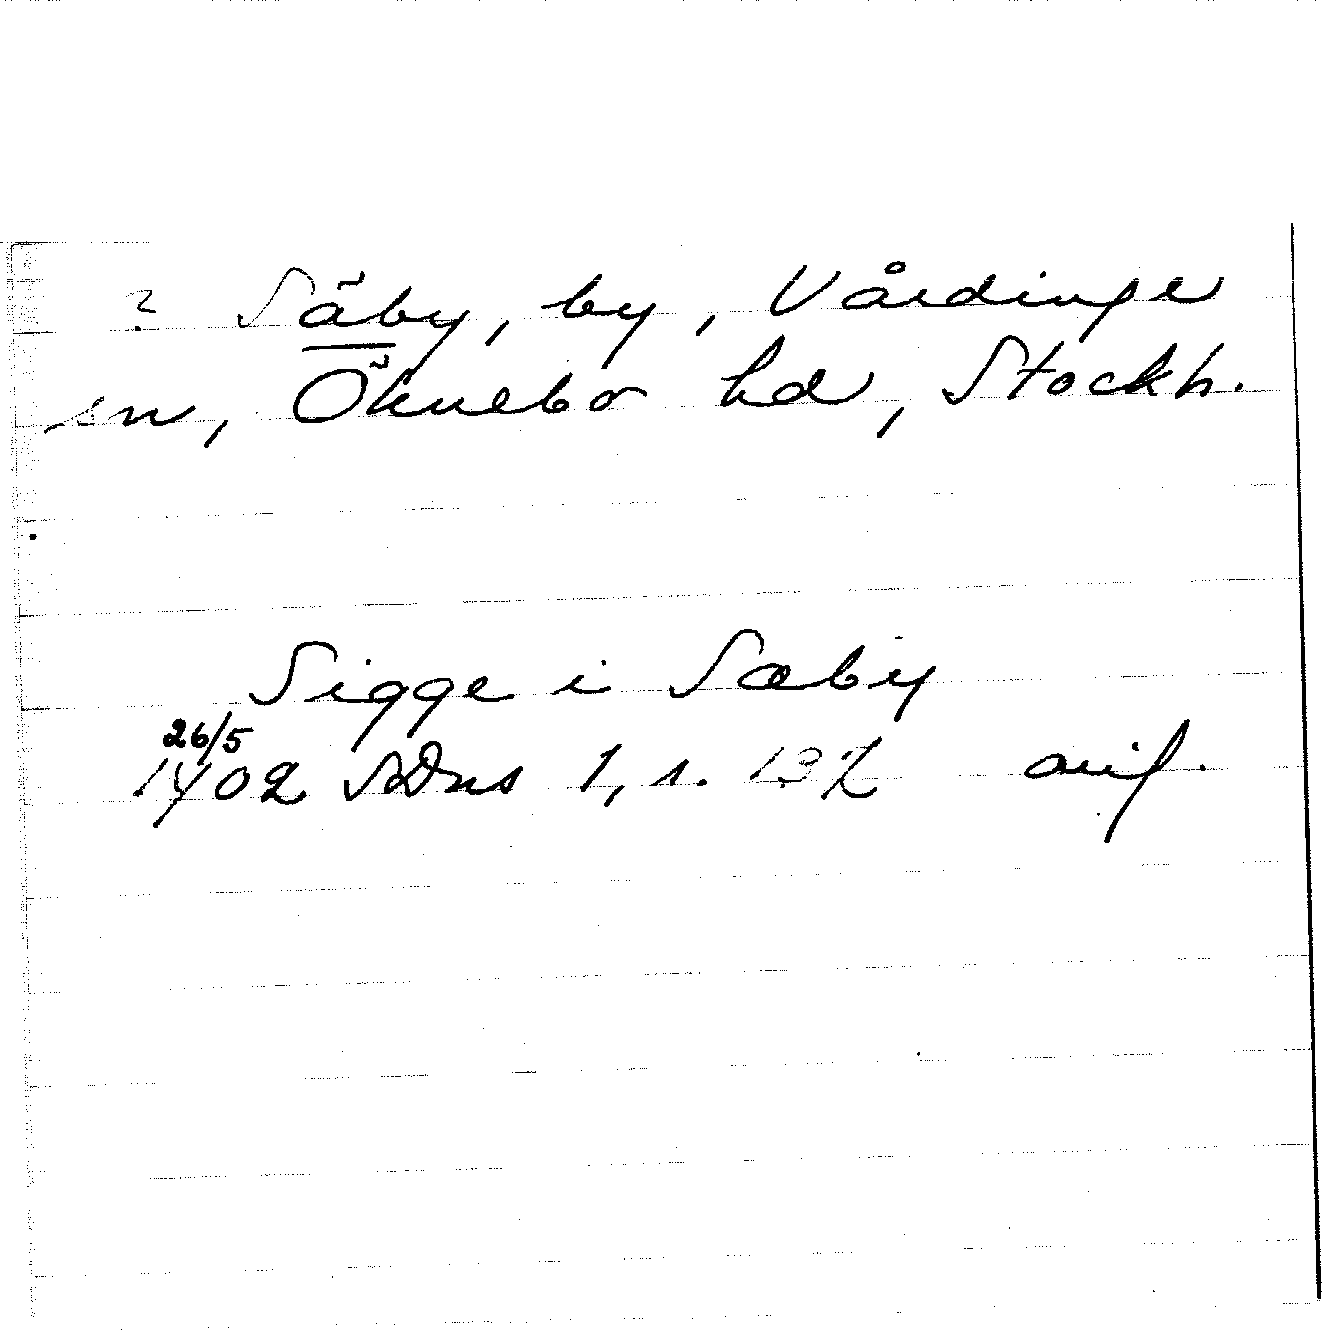 ? Säby, by, Vårdinge
sn, Öknebo hd, Stockh.
Sigge i Sæby
26/5
1402 SDns 1, s. 132 avif.